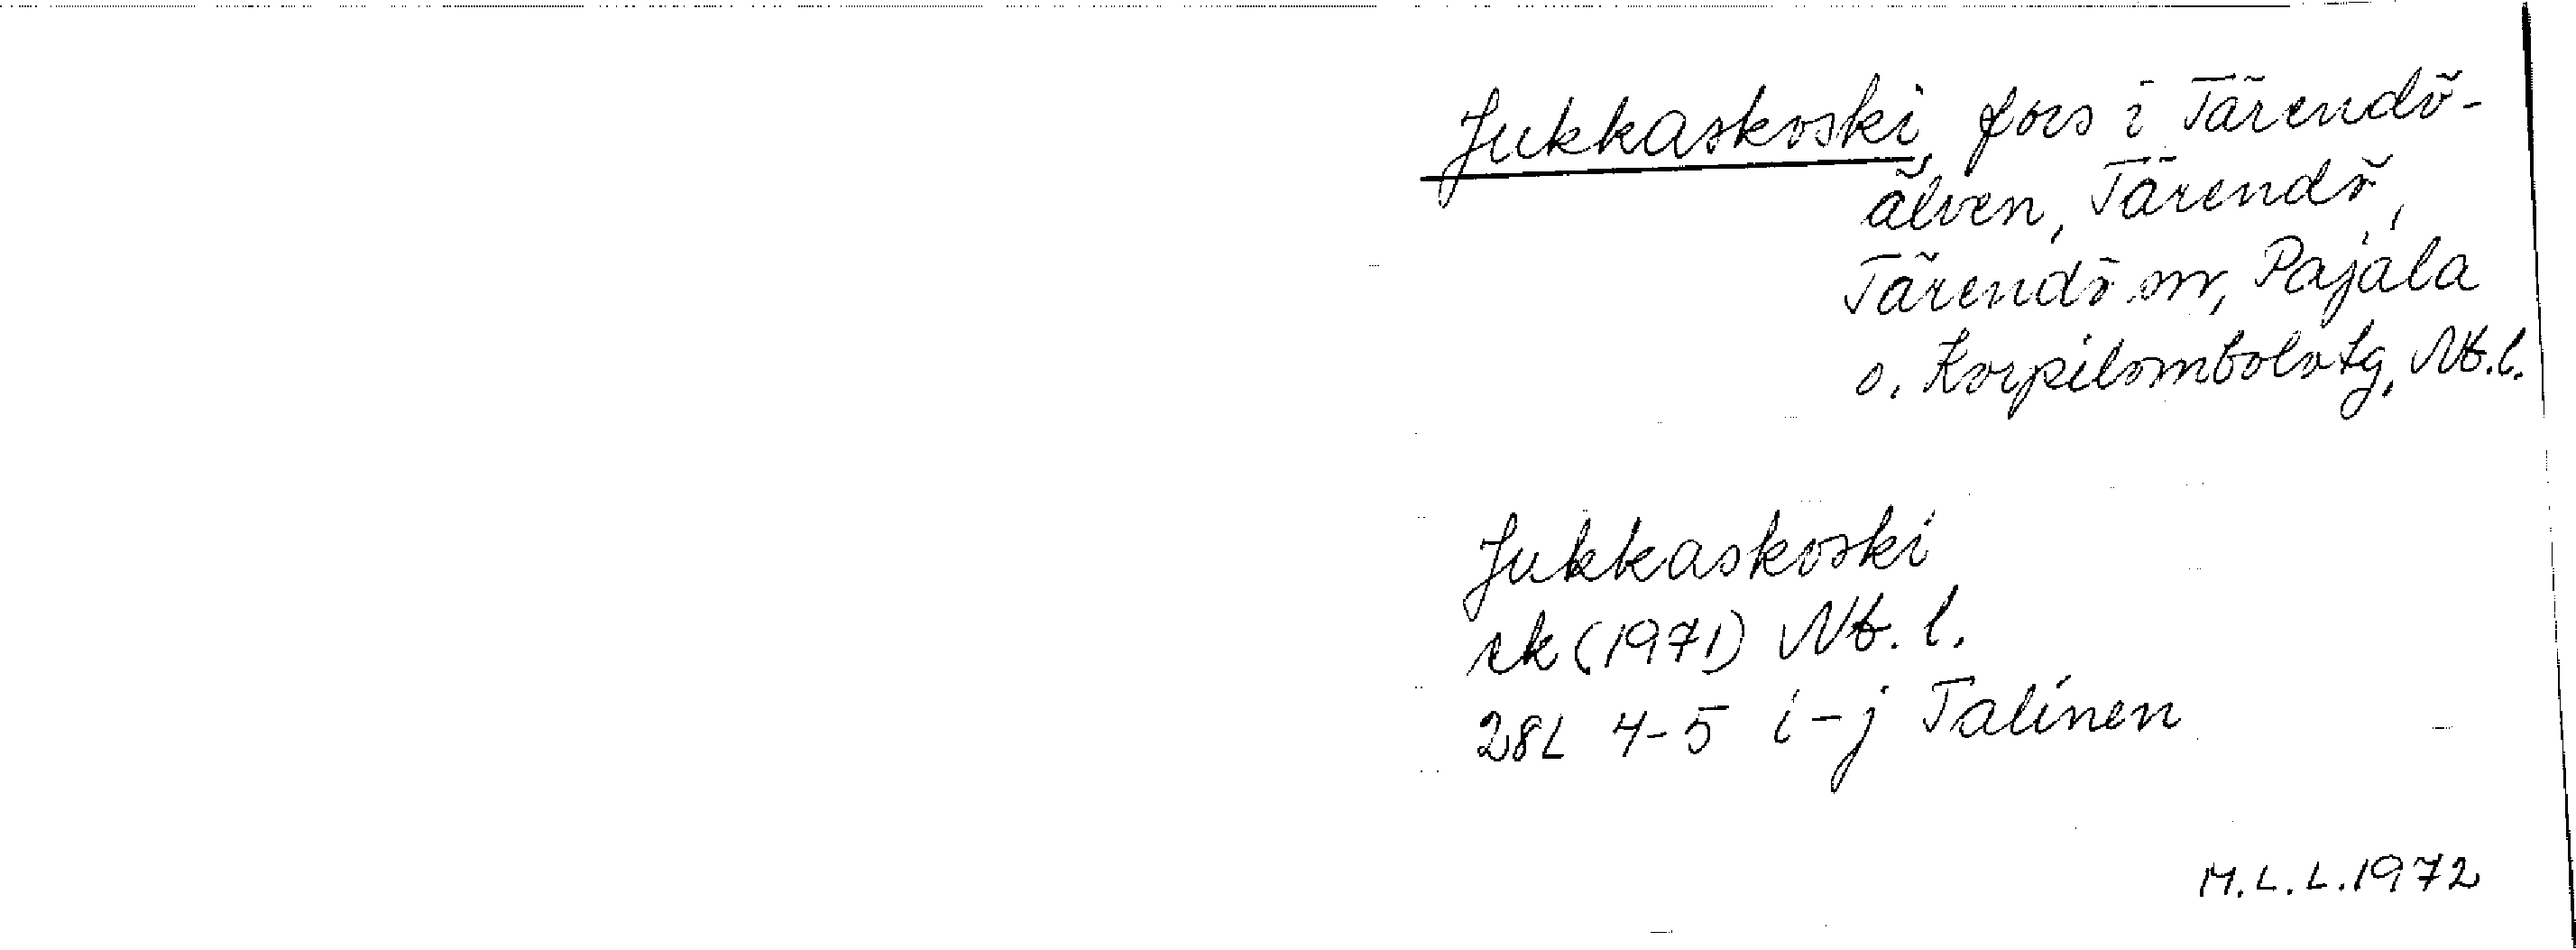 Jukkaskoski, fors i Tärendö-
älven, Tärendö,
Tärendö sn, Pajala
o. Korpilombolo tg, Nb.l.
Jukkaskoski
ek (1971) Nb. l.
28L 4-5 i-j Talinen
M.L.L.1972